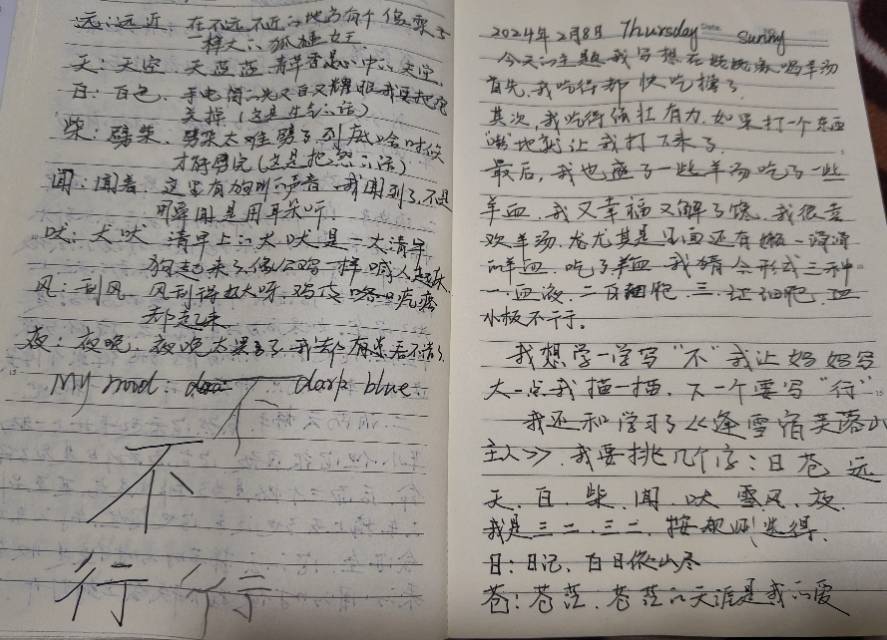 远：远近，在不远不近的地方有个像栗子
一样大的狐狸女王
天：天空，天蓝蓝，青草香是心中的天空。
白：白色，手电筒的光又白又耀眼我要把它
关掉（这是生气的话）
柴：劈柴，劈柴太难劈了到底啥时候
才能劈完（这是抱怨的话）
闻：闻着，这里有狗叫的声音，我闻到了，不是
用鼻闻是用耳朵听
吠：犬吠 清早上的犬吠是一大清早
狗起来了像公鸡一样喊人起床
风：刮风，风刮得好大呀，鸡皮疙瘩
都起来
夜：夜晚，夜晚太黑了，我都有点看不清了
My mood: dark blue.
不
不
行 行
2024年2月8日 Thursday sunny
今天的主题我写想在晚晚家喝羊汤
首先，我吃得都快吃撑了
其次，我吃得强壮有力，如果打一个东西
嗖地就让我打下来了
最后，我也盛了一些羊汤吃了一些
羊血，我又幸福又解了馋，我很喜
欢羊汤，尤其是里面还有嫩滑滑
的羊血，吃了羊血我猜会形成三种
一.血液，二.白细胞，三.红细胞，血
小板不行。
我想学一学写“不”我让妈妈写
大一点我描一描，下一个要写“行”
我还和学习了《逢雪宿芙蓉山
主人》，我要挑几个字：日 苍 远
天、白、柴、闻、吠 雪风、夜
我是三二、三二，按规则选得
日：日记，白日依山尽
苍：苍茫，苍茫的天涯是我的爱